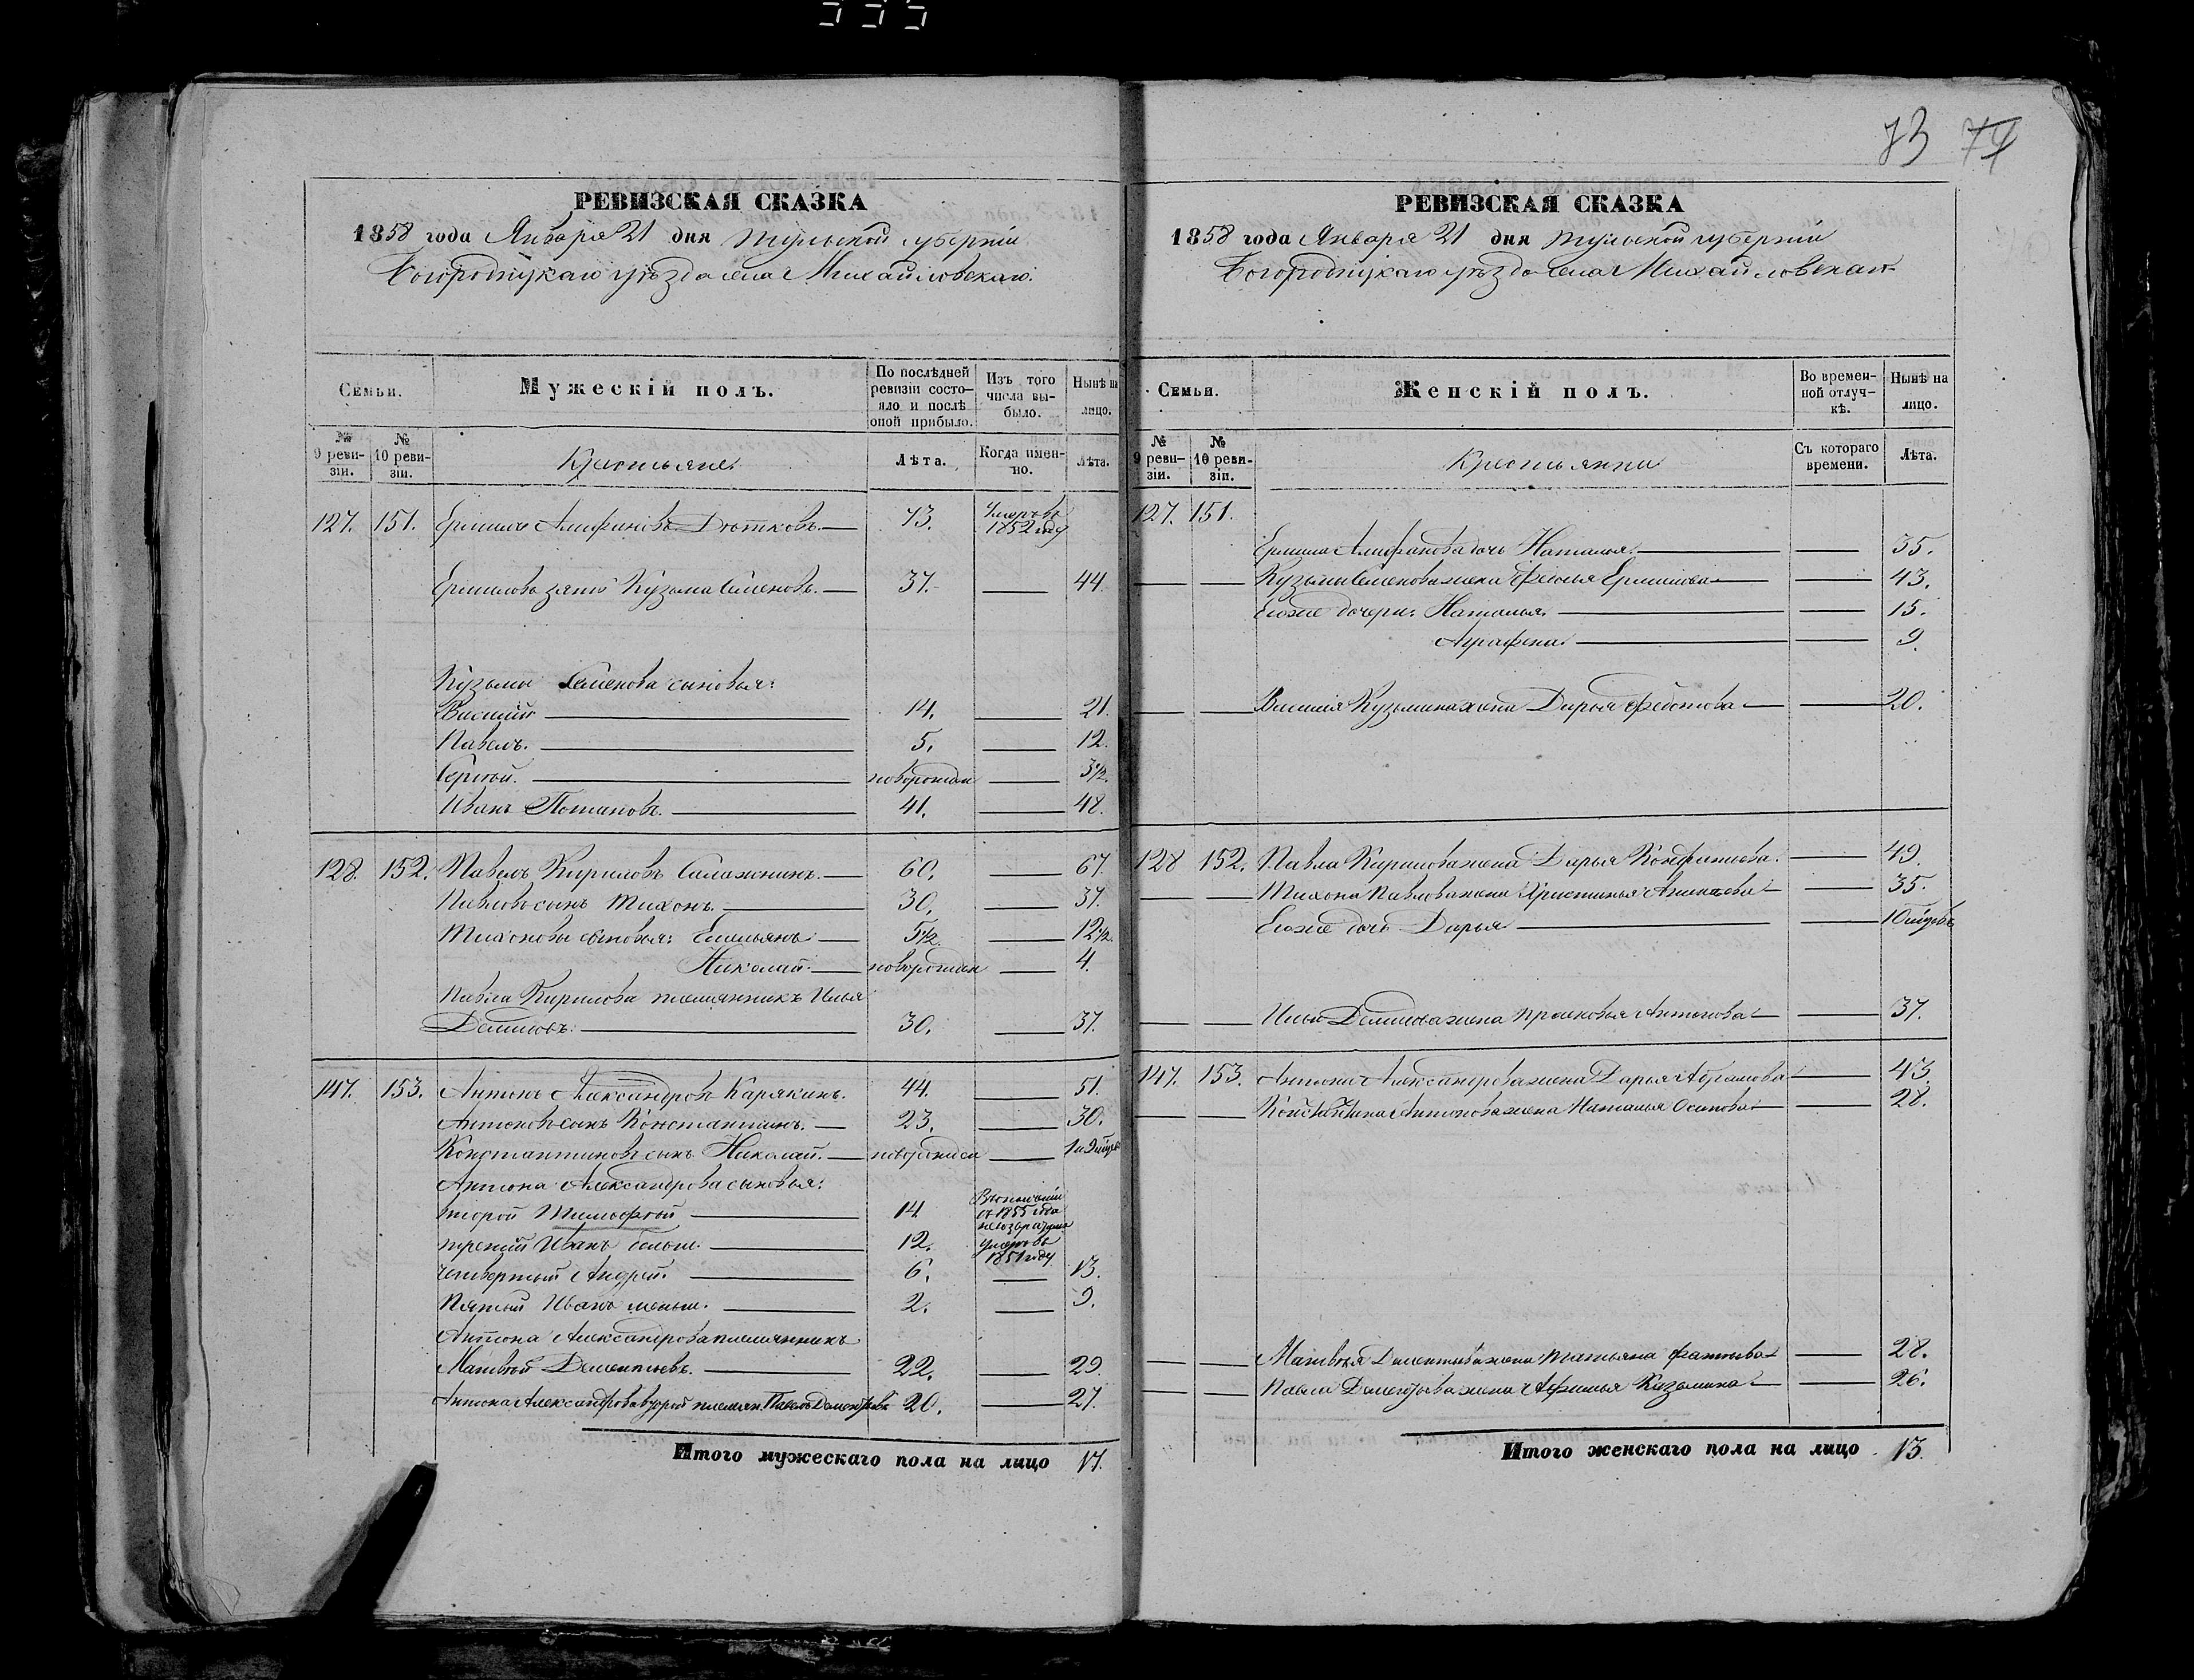 73 74
РЕВИЗСКАЯ СКАЗКА
1858 года Января 21 дня Тульской губернии
Богородицкаго уезда села Михайловскаго.
Семьи.
Мужескій полъ.
По послѣдней ревизіи состо-
яло и послѣ
оной прибыло.
Изъ того
числа вы-
было.
Нынѣ на
лицо.
№
9 реви-
зіи.
№
10 реви-
зіи.
Крестьяне.
Лѣта.
Когда имен-
но.
Лѣта.
127. 151. Ермилъ Алифановъ 43. Умеръ въ
1852 году
Ермиловъ зять Кузьма Семеновъ. 37. 44.
Кузьмы Семенова сыновья:
Василий 14. 21.
Павелъ. 5. 12.
Сергѣй. новорожден 3½.
Иванъ Потаповъ. 41. 48.
128. 152. Павелъ Кириловъ 60. 67.
Павловъ сынъ Тихонъ. 30. 37.
Тихоновы сыновья: Емельянъ 5½. 12½.
Николай. новорожден 4.
Павла Кирилова племянникъ Илья
30. 37.
147. 153. Антонъ Александровъ Карякинъ. 44. 51.
Антоновъ сынъ Константинъ. 23. 30.
Константиновъ сынъ Николай. новорожден
Антона Александрова сыновья:
второй Тимофѣй 14.
1855 года
третий Иванъ больш. 12. умеръ въ
1851 году
четвертый Андрей. 6. 13.
Пятый Иванъ меньш. 2. 9.
Антона Александрова племянникъ
Матвѣй Дементьевъ. 22. 29.
Антона Александрова второй племян. Павелъ Дементьевъ 20. 27.
Итого мужескаго пола на лицо 17.
РЕВИЗСКАЯ СКАЗКА
1858 года Января 21 дня Тульской губернии
Богородицкаго уезда села Михайловскаго
Семьи.
Женскій полъ.
Во времен-
ной отлуч-
кѣ.
Нынѣ на
лицо.
№
9 реви-
зіи.
№
10 реви-
зіи.
Крестьянки
Съ котораго
времени.
Лѣта.
127. 151.
Ермила Алифанова дочь Наталья. 35.
Кузьмы Семенова жена Ермилова 43.
Ево же дочери: Наталья. 15.
Аграфена. 9.
Василия Кузьмина жена Дарья Федотова 20.
128 152. Павла Кирилова жена Дарья 49.
Тихона Павлова жена Христинья 35.
Ево же дочь Дарья
Ильи жена Прасковья Антонова 37.
147. 153. Антона Александрова жена Дарья Абрамова 43.
Константина Антонова жена Наталья Осипова 28.
Матвѣя Дементьева жена Татьяна 28.
Павла Дементьева жена Афимья Кузьмина 26.
Итого женскаго пола на лицо 13.